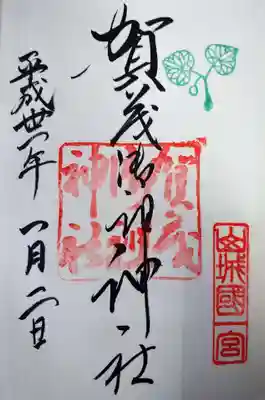 山城國一宮
賀茂御祖神社
賀茂
御祖
神社
平成卅一年一月二日